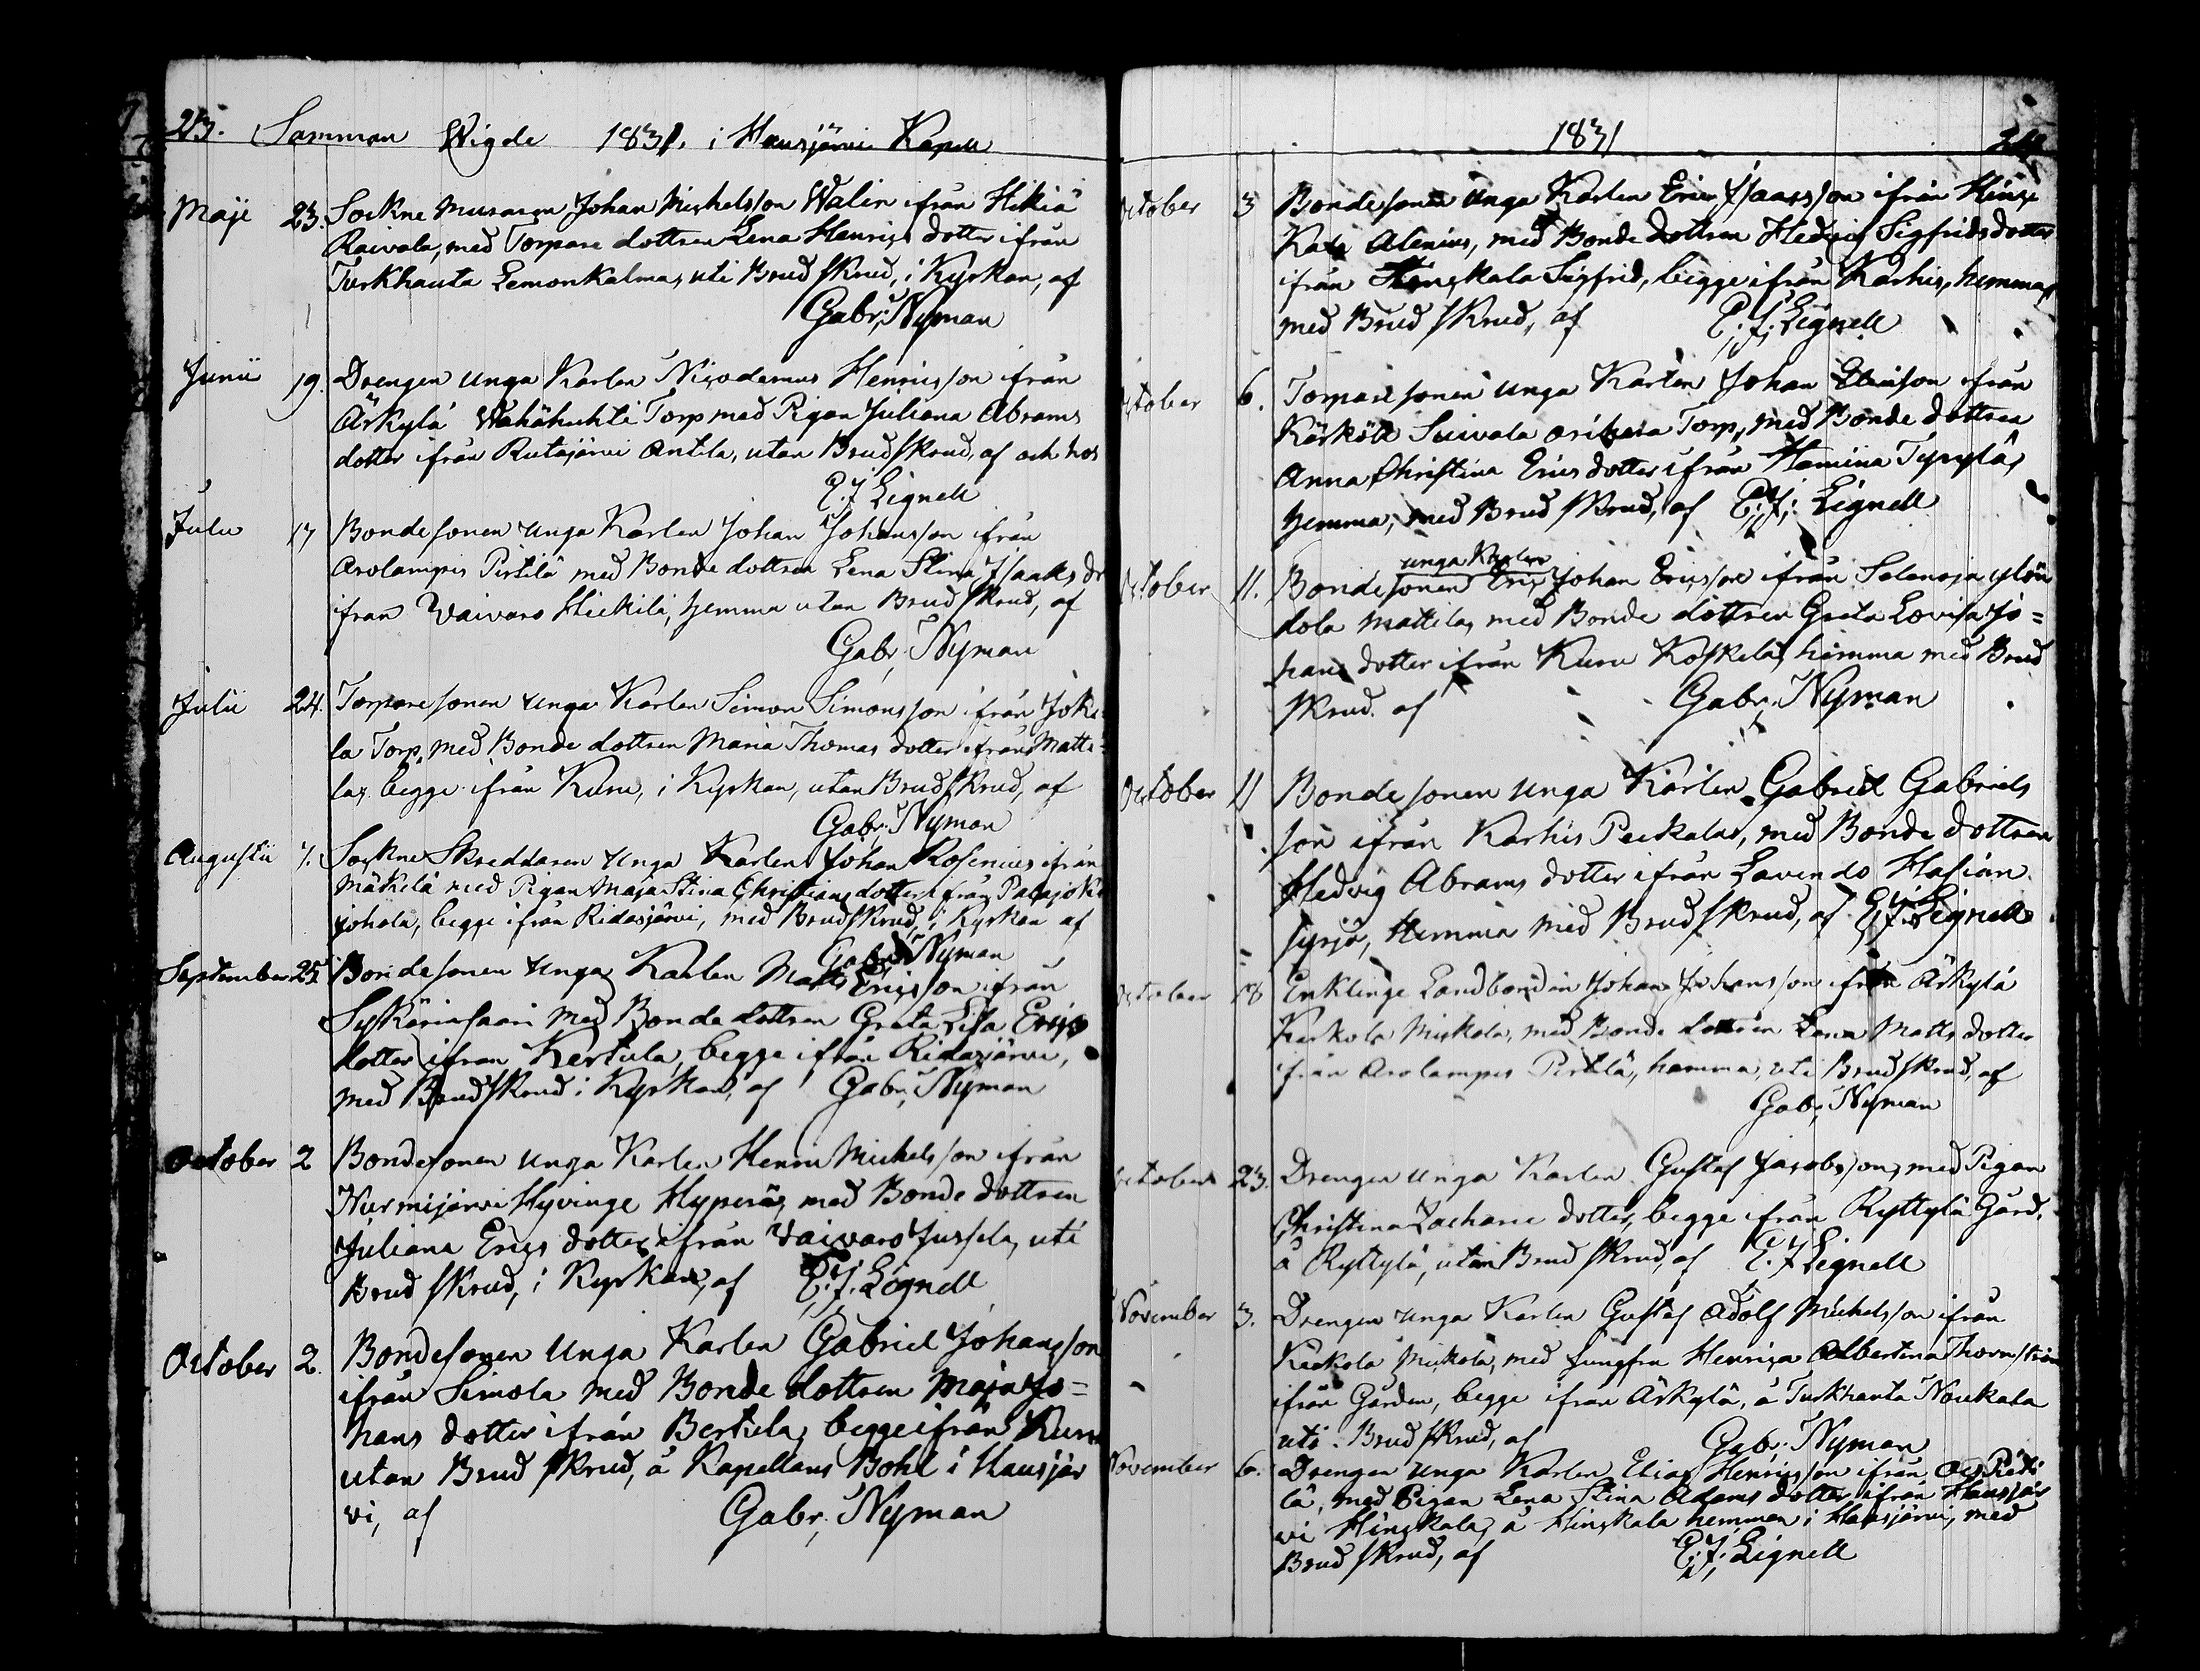 23. Samman Wigde 1831. i Hausjärvi Kapell
Maji 23. Sockne Muraren Johan Michelsson Walin ifrån Hikiä
Raivala, med Torpare dottren Lena Henrics dotter ifrån
Turkhauta Lemonkalma, uti Brud skrud, i Kyrkan, af
Gabr: Nyman
Junii 19. Drengen unga Karlen Nicodemus Henricsson ifrån
Ärkylä Wahähuhti Torp med Pigan Juliana Abrams
dotter ifrån Rutajärvi Antila, utan Brudskrud, af och hos
E. J. Lignell
Julii 17 Bondesonen unga Karlen Johan Johansson ifrån
Arolampis Pirtilä med Bonde dottren Lena Stina Isaaks dr
ifrån Vaivaro Heickilä, hemma utan Brud skrud, af
Gabr. Nyman
Julii 24. Torparesonen unga Karlen Simon Simonsson ifrån Joke
la Torp, med Bonde dottren Maria Thomas dotter ifrån Matti-
la, begge ifrån Kuru, i Kyrkan, utan Brudskrud, af
Gabr: Nyman
Augustii 7. Sockne Skreddaren unga Karlen Johan Rosenius ifrån
Mäkelä med Pigan Maja Stina Christians dotter ifrån Palajoki
johola, begge ifrån Ridasjärvi, med Brudskrud, i Kyrkan af
Gabr. Nyman
September 25 Bondesonen unga Karlen Matts Ericsson ifrån
Syskärinsaari med Bonde dottren Greta Lisa Erics
dotter ifrån Kertula, begge ifrån Ridasjärvi,
med Brudskrud i Kyrkan, af Gabr. Nyman
October 2 Bondesonen unga Karlen Henric Michelsson ifrån
Nurmijärvi Hyvinge Hyperä, med Bonde dottren
Juliana Erics dotter ifrån Vaivaro Jussila, uti
Brud skrud, i Kyrkan, af E. J. Lignell
October 2. Bondesonen unga Karlen Gabriel Johansson
ifrån Simola med Bonde dottren Maja Jo=
hans dotter ifrån Bertula, begge ifrån Kuru
utan Brud skrud, å Kapellans Bohl i Hausjär
vi, af Gabr. Nyman
1831
October 3 Bondesonen unga Karlen Eric Isaacsson ifrån Hings
Kala Alenius, med Bonde dottren Hedvig Sigfrids dotter
ifrån Hongskala Sigfrid, begge ifrån Karhis, hemma
med Brud skrud, af E. J. Lignell
October 6. Torparesonen unga Karlen Johan Eliasson ifrån
Kärkölä Suivala Torp, med Bonde dottren
Anna Christina Erics dotter ifrån Hamina Typylä,
hemma, med Brud skrud, af E. J. Lignell
unga Karlen
October 11. Bondesonen Eric Johan Ericsson ifrån Salensja ylön
dola Mattila, med Bonde dottren Greta Lovisa Jo=
hans dotter ifrån Kuru Koskela, hemma med Brud
skrud. af Gabr. Nyman
October 11 Bondesonen unga Karlen Gabriel Gabriels
son ifrån Karhis Peckala, med Bonde dottren
Hedvig Abrams dotter ifrån Lavendo Hasian
syrjä, Hemma med Brud skrud, af E. J. Lignell
October 18 Enklinge Landbonden Johan Johansson ifrån Ärkylä
Karkola Mickola, med Bonde dottren Lena Matts dotter
ifrån Arolampis Pirtilä, hemma, uti Brud skrud, af
Gabr. Nyman
October 23. Drengen unga Karlen Gustaf Jacobsson, med Pigan
Christina Zacharie dotter, begge ifrån Ryttylä Gård,
å Ryttylä, utan Brud skrud, af E. J. Lignell
November 3. Drengen unga Karlen Gustaf Adolf Michelsson ifrån
Karkola Mickola, med Jungfru Henrica Albertina Thornström
ifrån Gården, begge ifrån Ärkylä, å Turkhauta Noukala
uti Brud skrud, af Gabr. Nyman
November 6. Drengen unga Karlen Elias Henricsson ifrån
lä, med Pigan Lena Stina Adams dotter ifrån Hausjär
vi Hingskala, å Hingskala hemman i Hausjärvi, med
Brud skrud, af E. J. Lignell